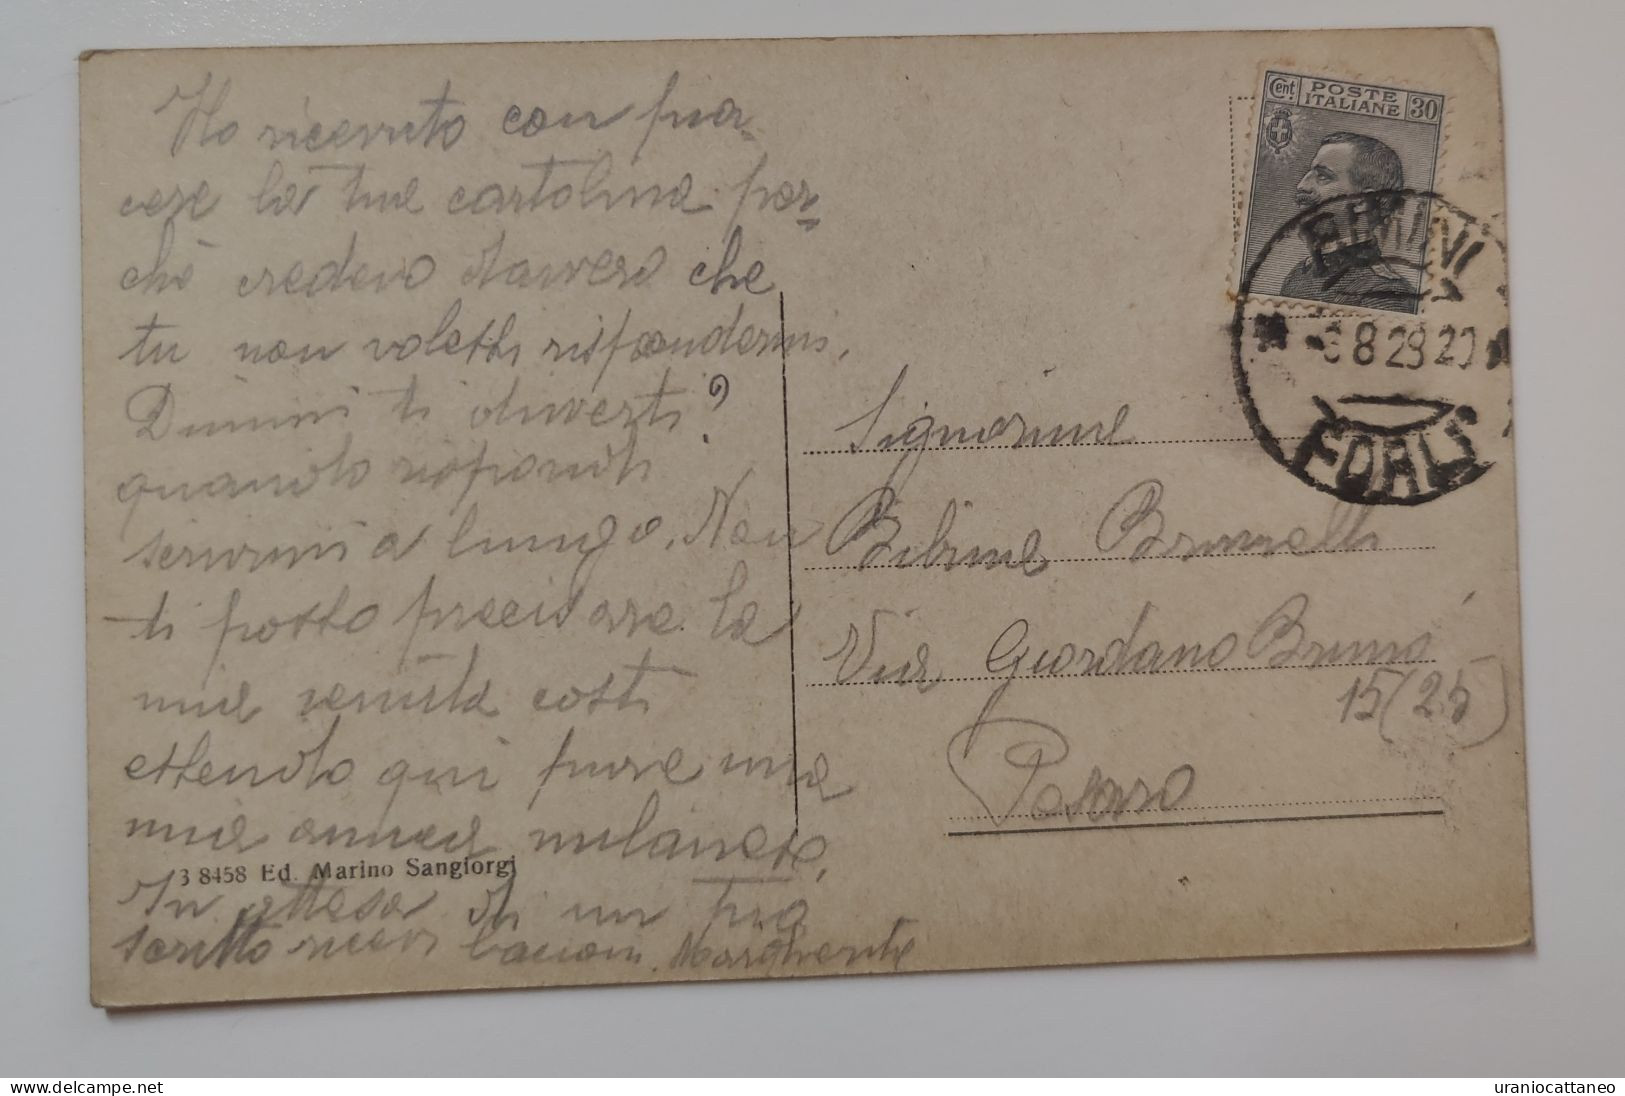 Ho ricevuto con pia-
cere la tua cartolina per-
chè credevo davvero che
tu non volessi rispondermi.
Dimmi ti diverti?
quando rispondi
scrivimi a lungo. Non
ti posso precisare la
mia venuta costì
essendo qui pure una
mia amica milanese.
In attesa di un tuo
scritto ricevi bacioni. Margherita
3 8458 Ed. Marino Sangiorgi
Cent. POSTE ITALIANE 30
RIMINI
8 29 20
FORLI
Signorina
Bibina Brunelli
Via Giordano Bruno
15 (25)
Pesaro
delcampe.net
uraniocattaneo